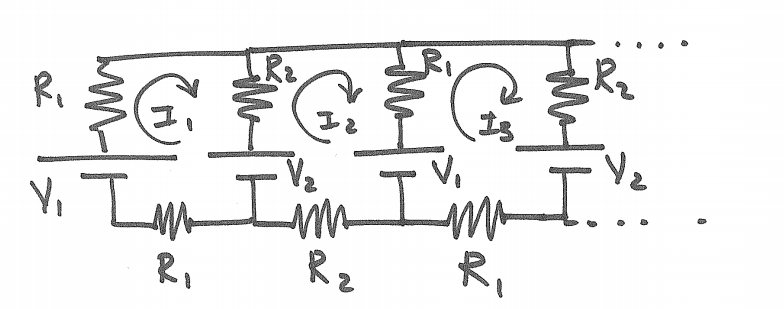 R₁ I₁ R₂ I₂ R₁ I₃ R₂
V₁ V₂ V₁ V₂
R₁ R₂ R₁